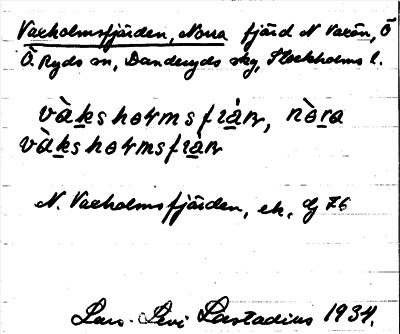 Vaxholmsfjärden, Norra fjärd N Vaxön, Ö
Ö. Ryds sn, Danderyds skg, Stockholms l.
vàkshormsfiàṇ, nòra
vàkshormsfiàṇ
N. Vaxholmsfjärden, ek,
Lars-Levi Læstadius 1934.